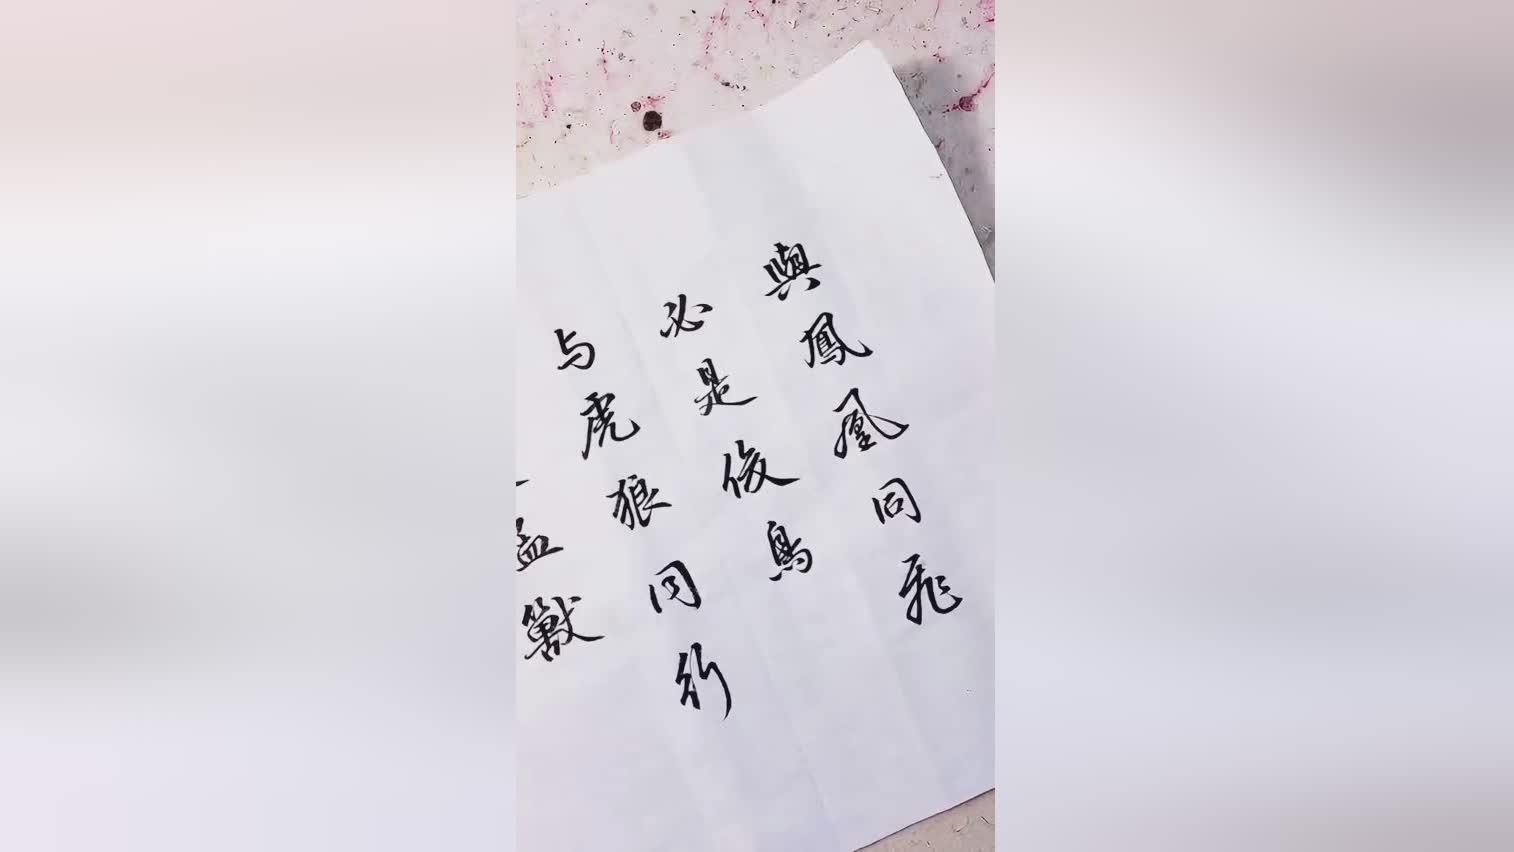 與鳳凰同飛
必是俊鳥
与虎狼同行
猛獸